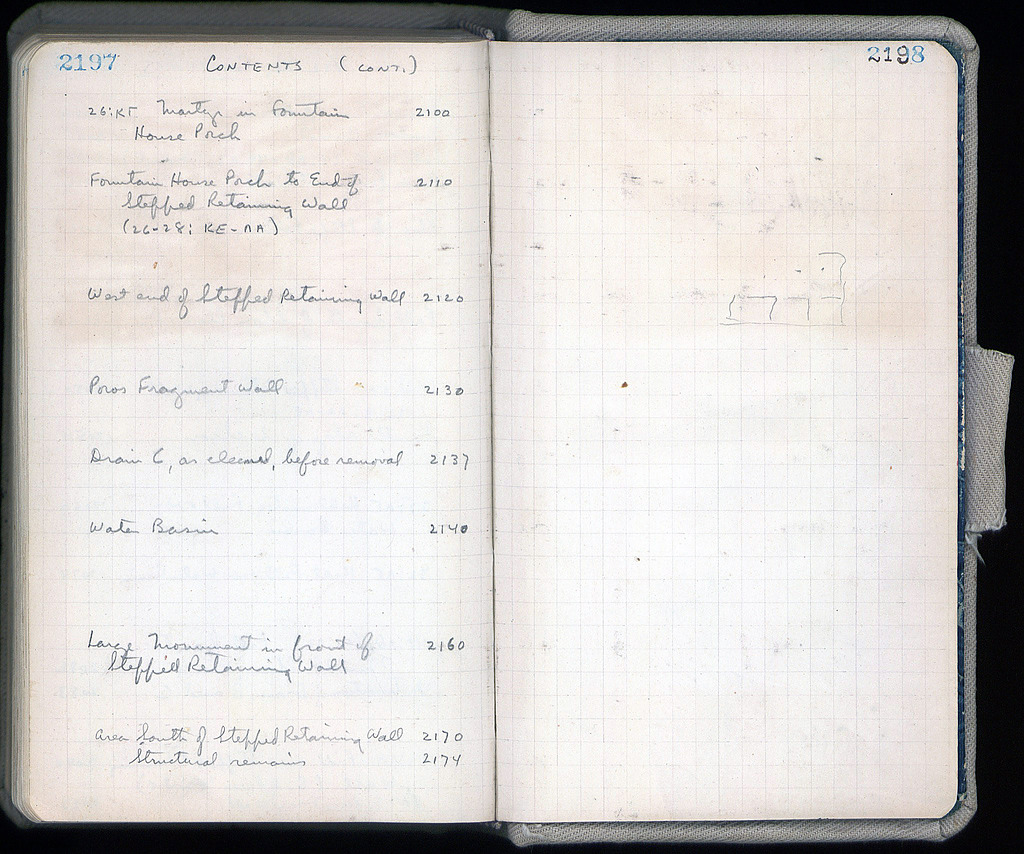 2197
CONTENTS (CONT.)
26:KΓ Martyr in Fountain 2100
House Porch
Fountain House Porch to End of 2110
Stepped Retaining Wall
(26-28; KE-ΛA)
West end of Stepped Retaining Wall 2120
Poros Fragment Wall 2130
Drain C, as cleaned, before removal 2137
Water Basin 2140
Large Monument in front of 2160
Stepped Retaining Wall
Area South of Stepped Retaining Wall 2170
Structural remains 2174
2198